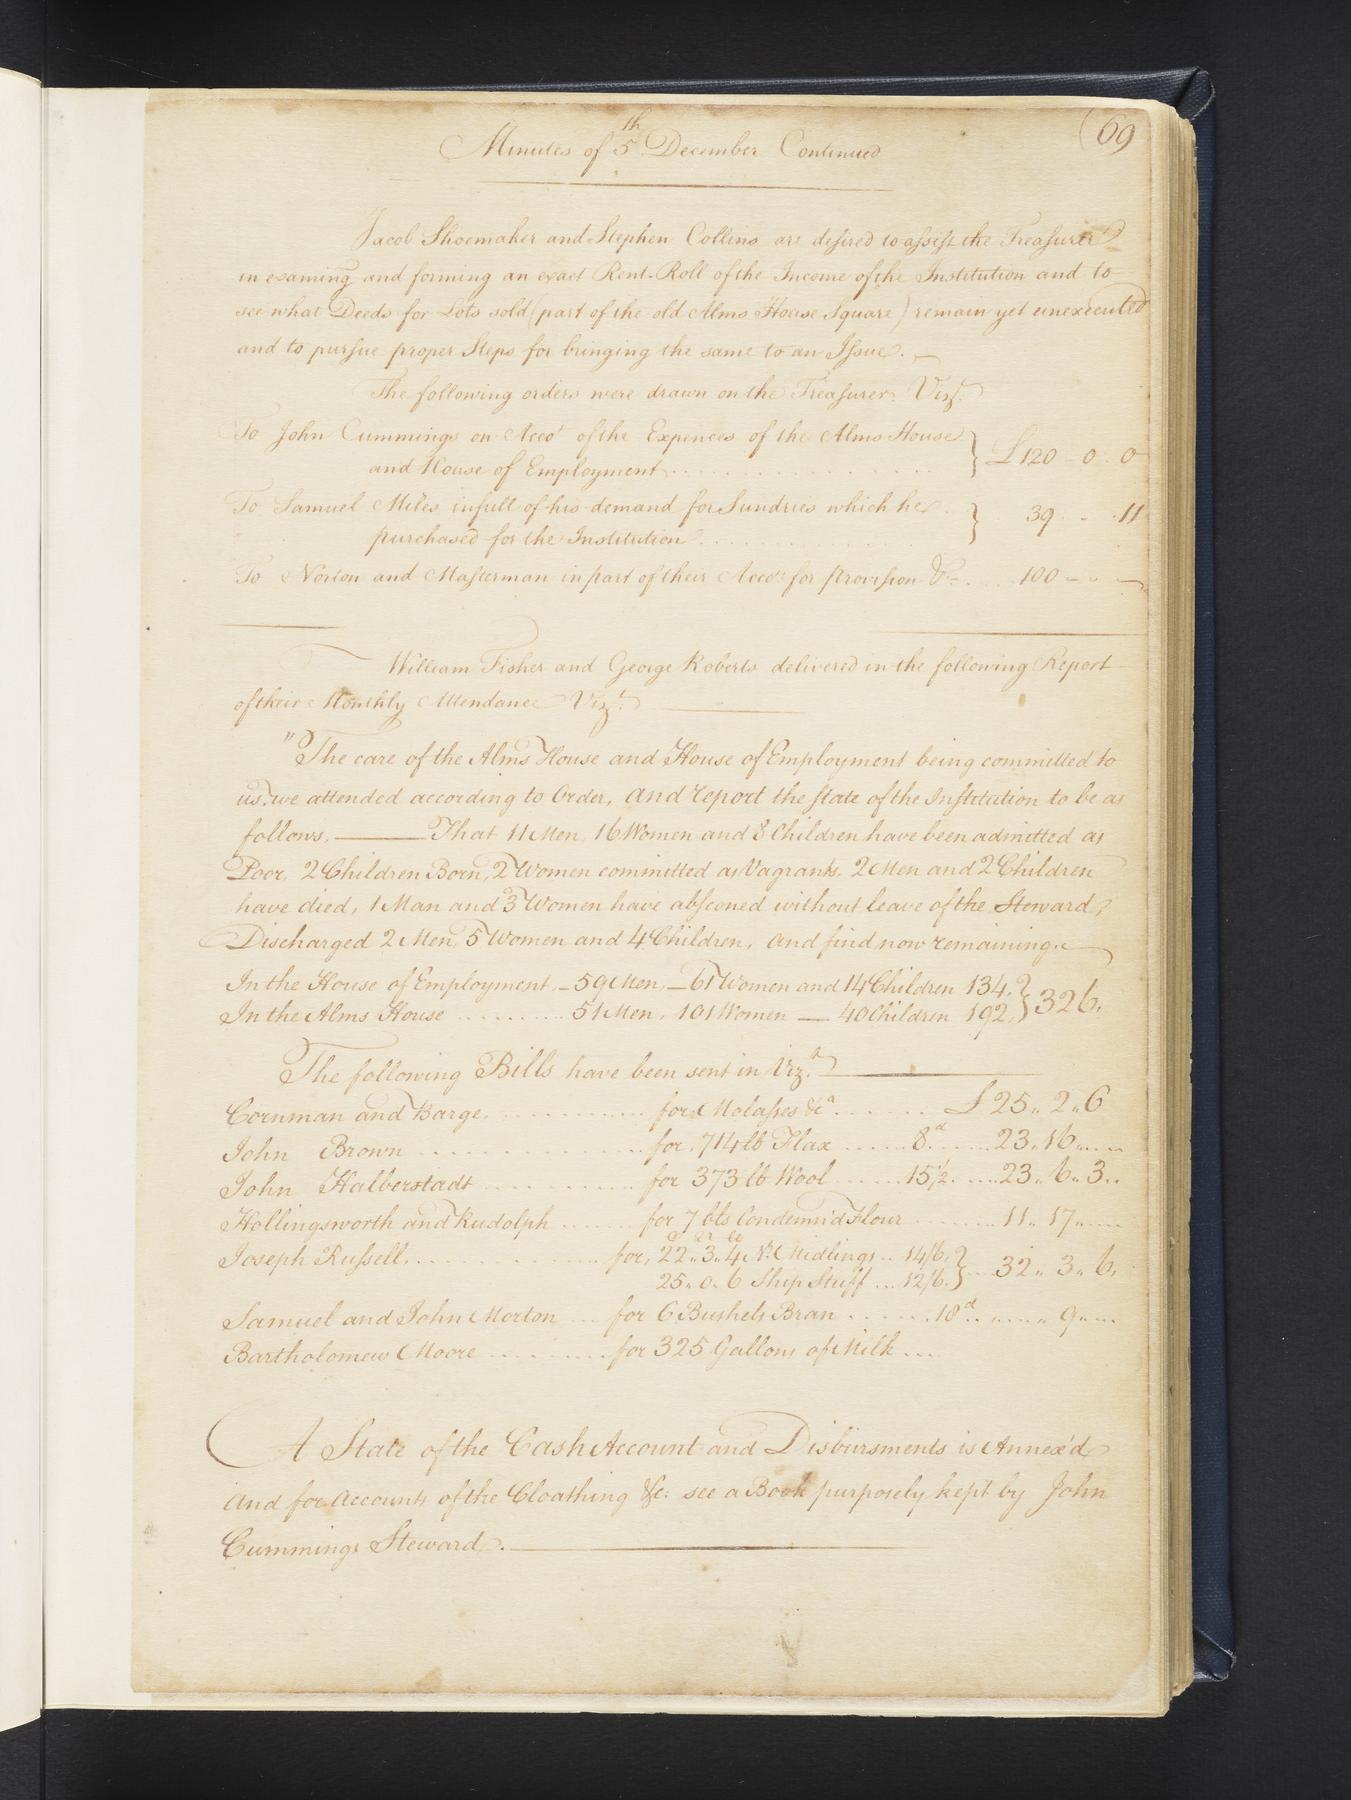 (69
Minutes of 5th December Continued
Jacob Shoemaker and Stephen Collins are desired to assist the Treasurer
in examing and forming an exact Rent-Roll of the Income of the Institution and to
see what Deeds for Lots sold (part of the old Alms House Square) remain yet unexecuted
and to pursue proper Steps for bringing the same to an Issue.
The following orders were drawn on the Treasurer Vizt.
To John Cummings on Acco't of the Expences of the Alms House } £120 0 0
and House of Employment
To Samuel Miles in full of his demand for Sundries which he } 39 - 11
purchased for the Institution
To Norton and Masterman in part of their Acco't for provision &c 100 - - -
William Fisher and George Roberts delivered in the following Report
of their Monthly Attendance Vizt.
"The care of the Alms House and House of Employment being committed to
us, we attended according to Order, and report the state of the Institution to be as
follows, —— That 11 Men, 16 Women and 8 Children have been admitted as
Poor, 2 Children Born, 2 Women committed as Vagrants, 2 Men and 2 Children
have died, 1 Man and 3 Women have absconed without leave of the Steward,
Discharged 2 Men, 5 Women and 4 Children, and find now remaining.
In the House of Employment, – 59 Men, – 61 Women and 14 Children 134, } 326.
In the Alms House ......... 51 Men, 101 Women — 40 Children 192,
The following Bills have been sent in Vizt.
Cornman and Barge, ............ for Molasses &ca ....... £25,, 2,, 6
John Brown ............ for 714 lb Flax ...... 8d ..... 23,, 16,,....
John Halberstadt ............ for 373 lb Wool ...... 15½ ..... 23,, 6,, 3..
Hollingsworth and Rudolph ....... for 7 bls Condemn'd Flour ......... 11,, 17,,....
Joseph Russell, ............ for, 22,, 3,, 4 Nt. Midlings .. 14/6, } ... 32,, 3,, 6,
25,, 0,, 6 Ship Stuff ... 12/6.
Samuel and John Morton ... for 6 Bushels Bran ...... 18d .. ,,.... ,, 9,,...
Bartholomew Moore ......... for 325 Gallons of Milk ...
A State of the Cash Account and Disbursments is Annex'd
And for Accounts of the Cloathing &c: see a Book purposely kept by John
Cummings Steward.